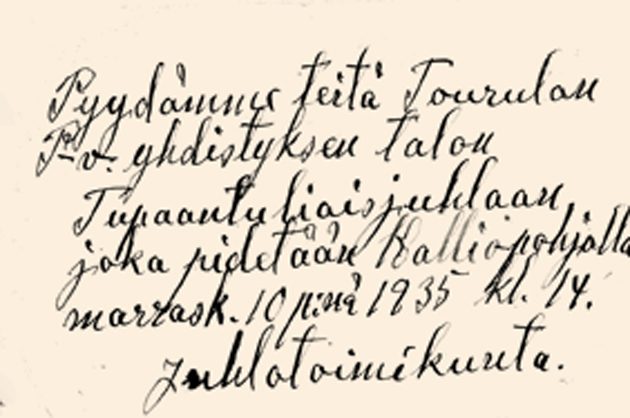 Pyydämme teitä Tourulan
P.v. yhdistyksen talon
Tupaantuliaisjuhlaan,
joka pidetään Kalliopohjalla
marrask. 10 p:nä 1935 kl. 14.
Juhlatoimikunta.